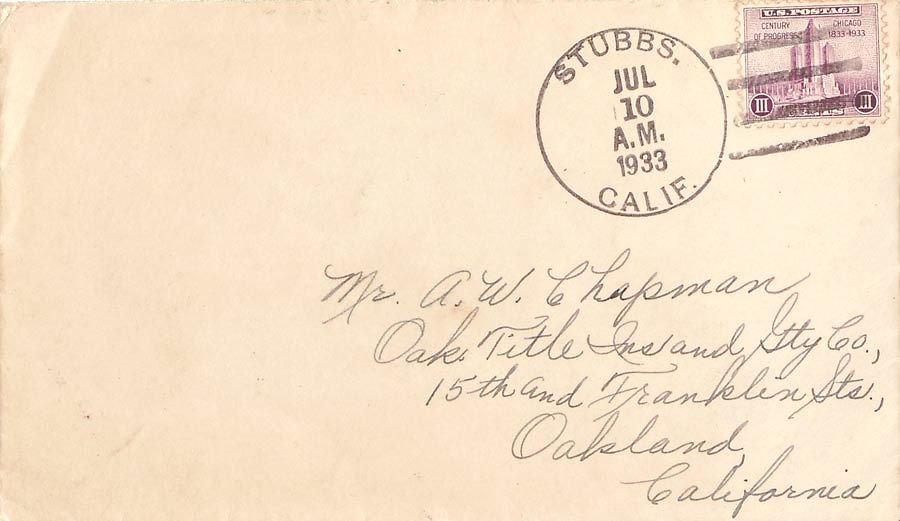 STUBBS.
JUL
10
A.M.
1933
CALIF.
U.S. POSTAGE
CENTURY OF PROGRESS
CHICAGO 1833-1933
III CENTS III
Mr. A. W. Chapman
Oak. Title Ins and Gty Co.,
15th and Franklin Sts.,
Oakland,
California